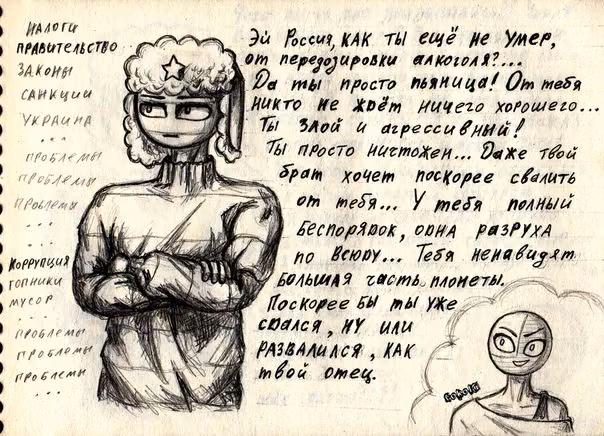 Налоги
Правительство
Законы
Санкции
Украина
...
Проблемы
Проблемы
Проблемы
...
...
Коррупция
Гопники
Мусор
...
Проблемы
Проблемы
Проблемы
...
Эй Россия, как ты ещё не умер,
от передозировки алкоголя?...
Да ты просто пьяница! От тебя
никто не ждёт ничего хорошего...
Ты злой и агрессивный!
Ты просто ничтожен... Даже твой
брат хочет поскорее свалить
от тебя... У тебя полный
беспорядок, одна разруха
по всюду... Тебя ненавидят
большая часть планеты.
Поскорее бы ты уже
сдался, ну или
развалился, как
твой отец.